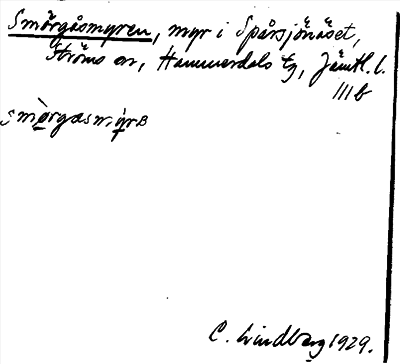 Smörgåsmyren, myr i Spårsjönäset,
Ströms sn, Hammerdals tg, Jämtl. l.
III b
smòrgasmyrɐ
C. Lindberg 1929.